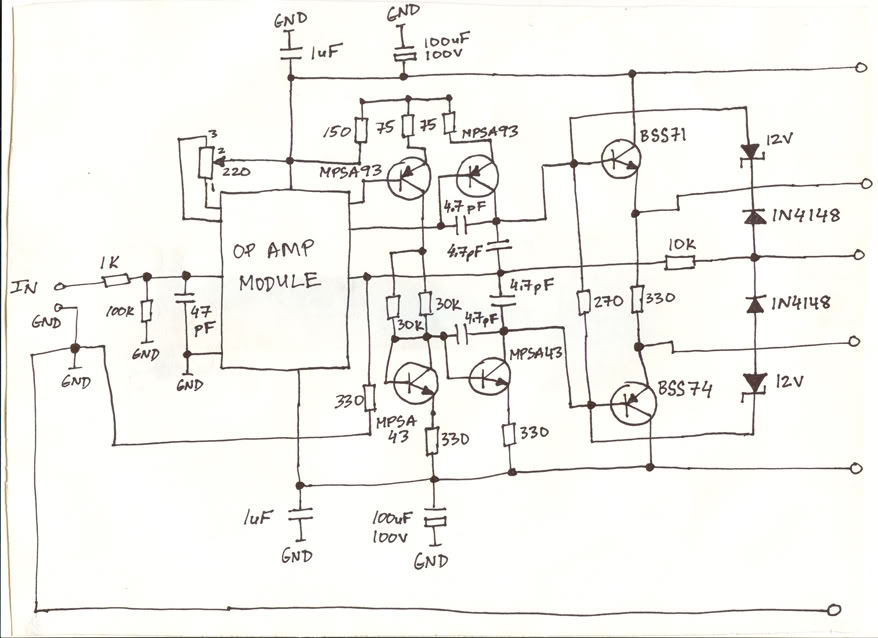 GND
GND
1uF
100uF
100V
150
75
75
MPSA93
BSS71
12V
3
2
220
1
MPSA93
4.7pF
1N4148
OP AMP
MODULE
4.7pF
10K
1K
IN
4.7pF
GND
100K
47
pF
30K
30K
4.7pF
270
330
1N4148
GND
GND
GND
MPSA43
330
MPSA
43
330
330
BSS74
12V
1uF
100uF
100V
GND
GND